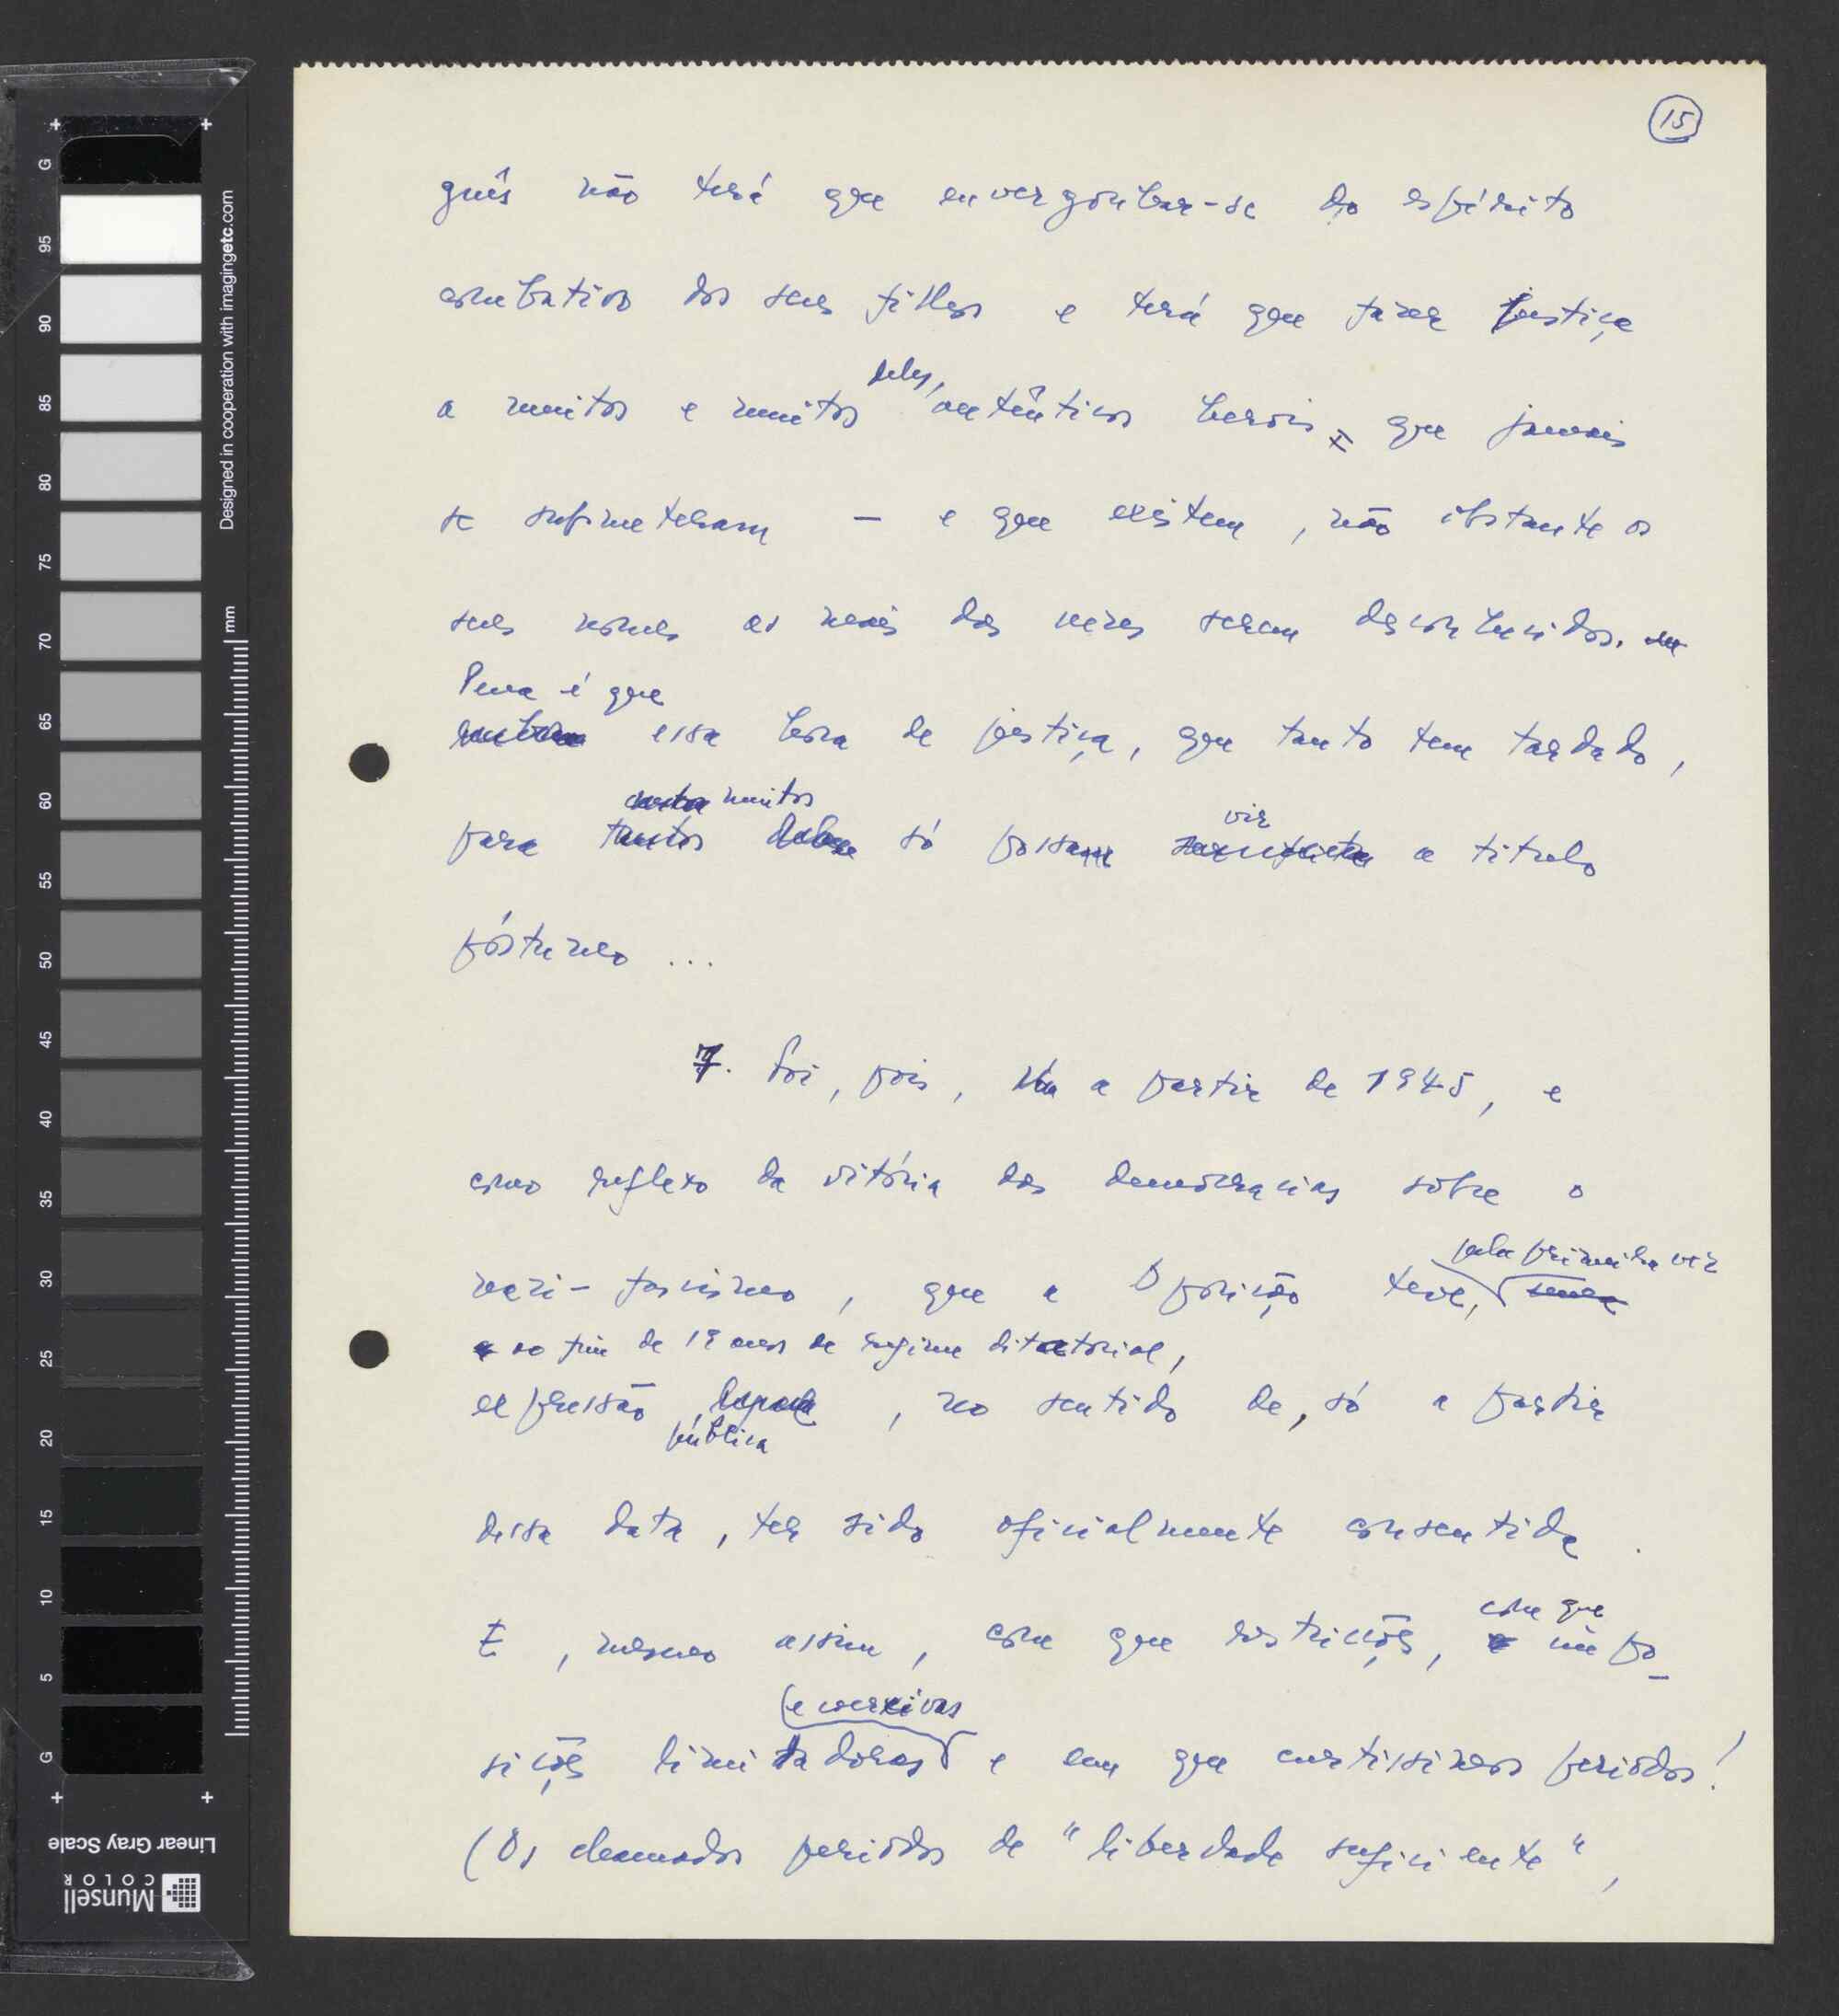 15
guês não terá que envergonhar-se do espírito
combativo dos seus filhos e terá que fazer justiça
deles,
a muitos e muitos autênticos herois que jamais
se submeteram — e que existem, não obstante os
seus nomes as mais das vezes serem desconhecidos.
Pena é que
embora essa hora de justiça, que tanto tem tardado,
muitos
vir
para tantos só possa a titulo
póstumo ...
7. Foi, pois, a partir de 1945, e
como reflexo da vitória das democracias sôbre o
pela primeira vez
nazi-fascismo, que a Oposição teve,
ao fim de 19 anos de regime ditatorial,
expressão legal, no sentido de, só a partir
pública
dessa data, ter sido oficialmente consentida.
com que
E, mesmo assim, com que restrições, e impo-
(e coercivas
sições limitadoras e em que curtissimos periodos!
(Os chamados periodos de "liberdade suficiente",
G
95
90
85
80
75
70
65
60
55
50
45
40
35
30
25
20
15
10
5
G
Designed in cooperation with imagingetc.com
mm
Linear Gray Scale
Munsell
COLOR